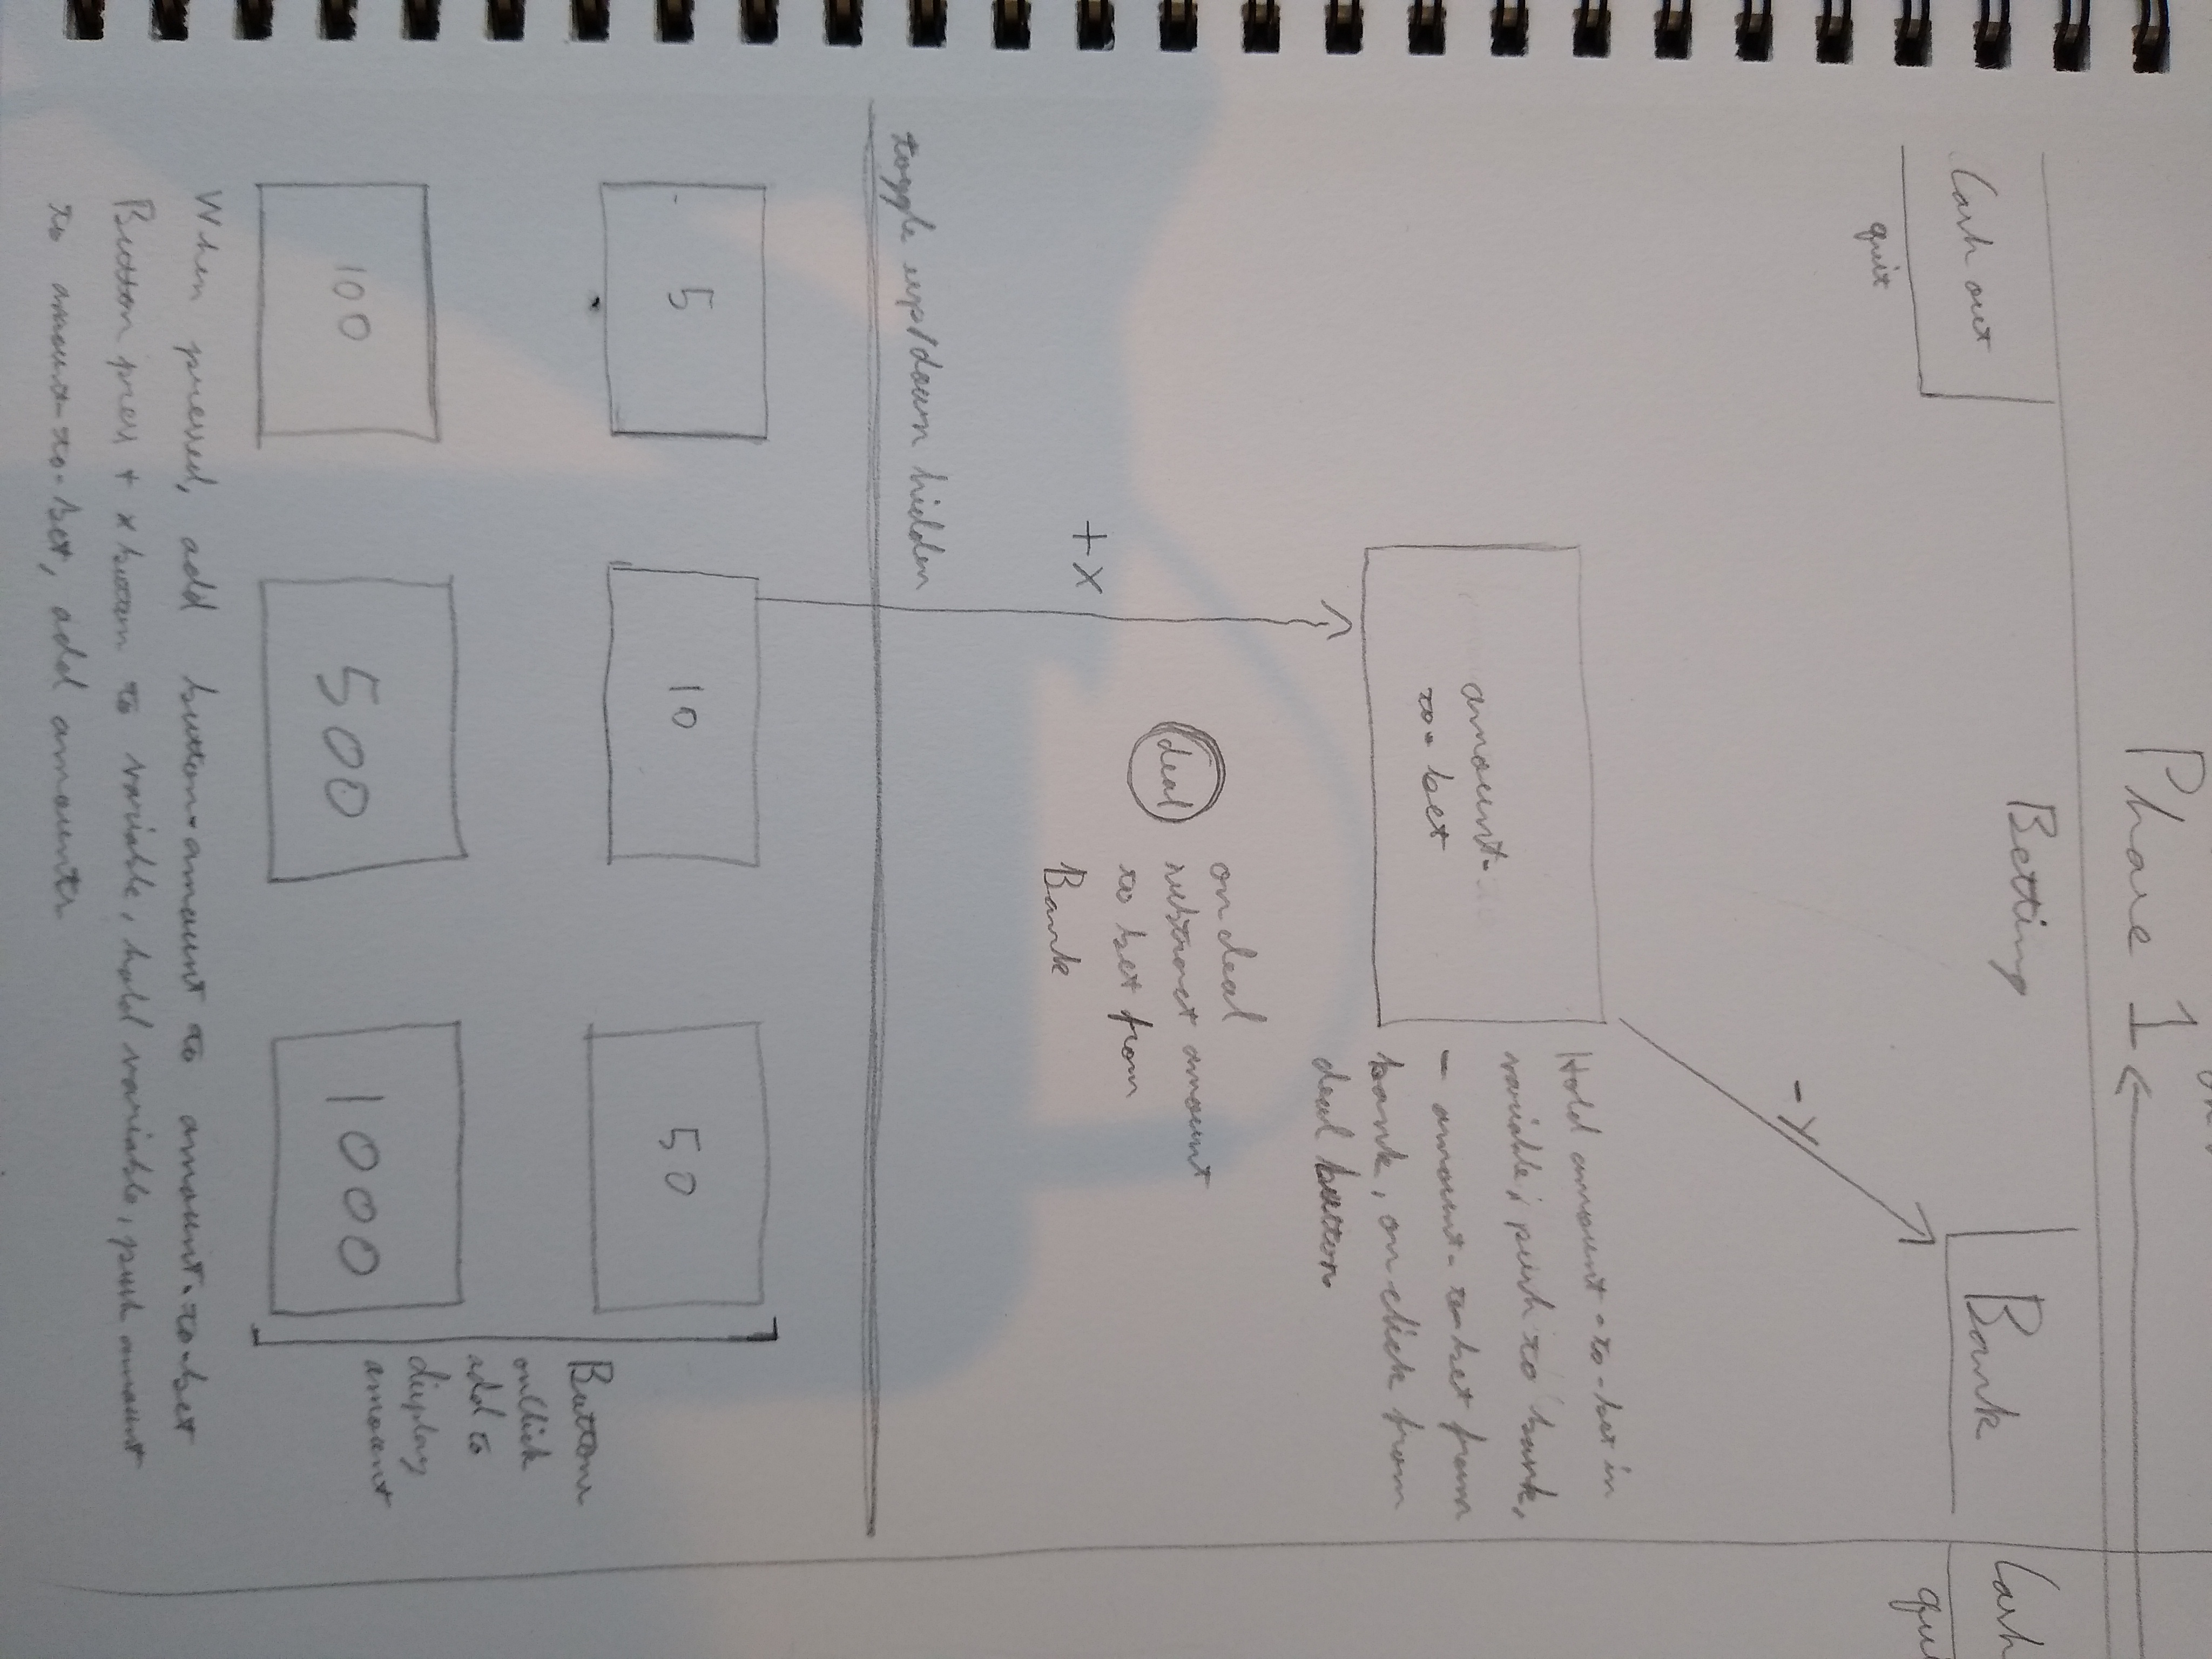 Phase 1
Betting
Cash out
quit
Bank
Cash
-y
amount-
to-bet
Hold amount-to-bet in
variable, push to bank,
- amount-to-bet from
bank, on click from
deal button
+x
deal
on deal
subtract amount
to bet from
Bank
toggle up/down hidden
5
10
50
100
500
1000
Buttons
onclick
add to
display
amount
When pressed, add button-amount to amount-to-bet
Button press + x button to variable, hold variable, push amount
to amount-to-bet, add amounts